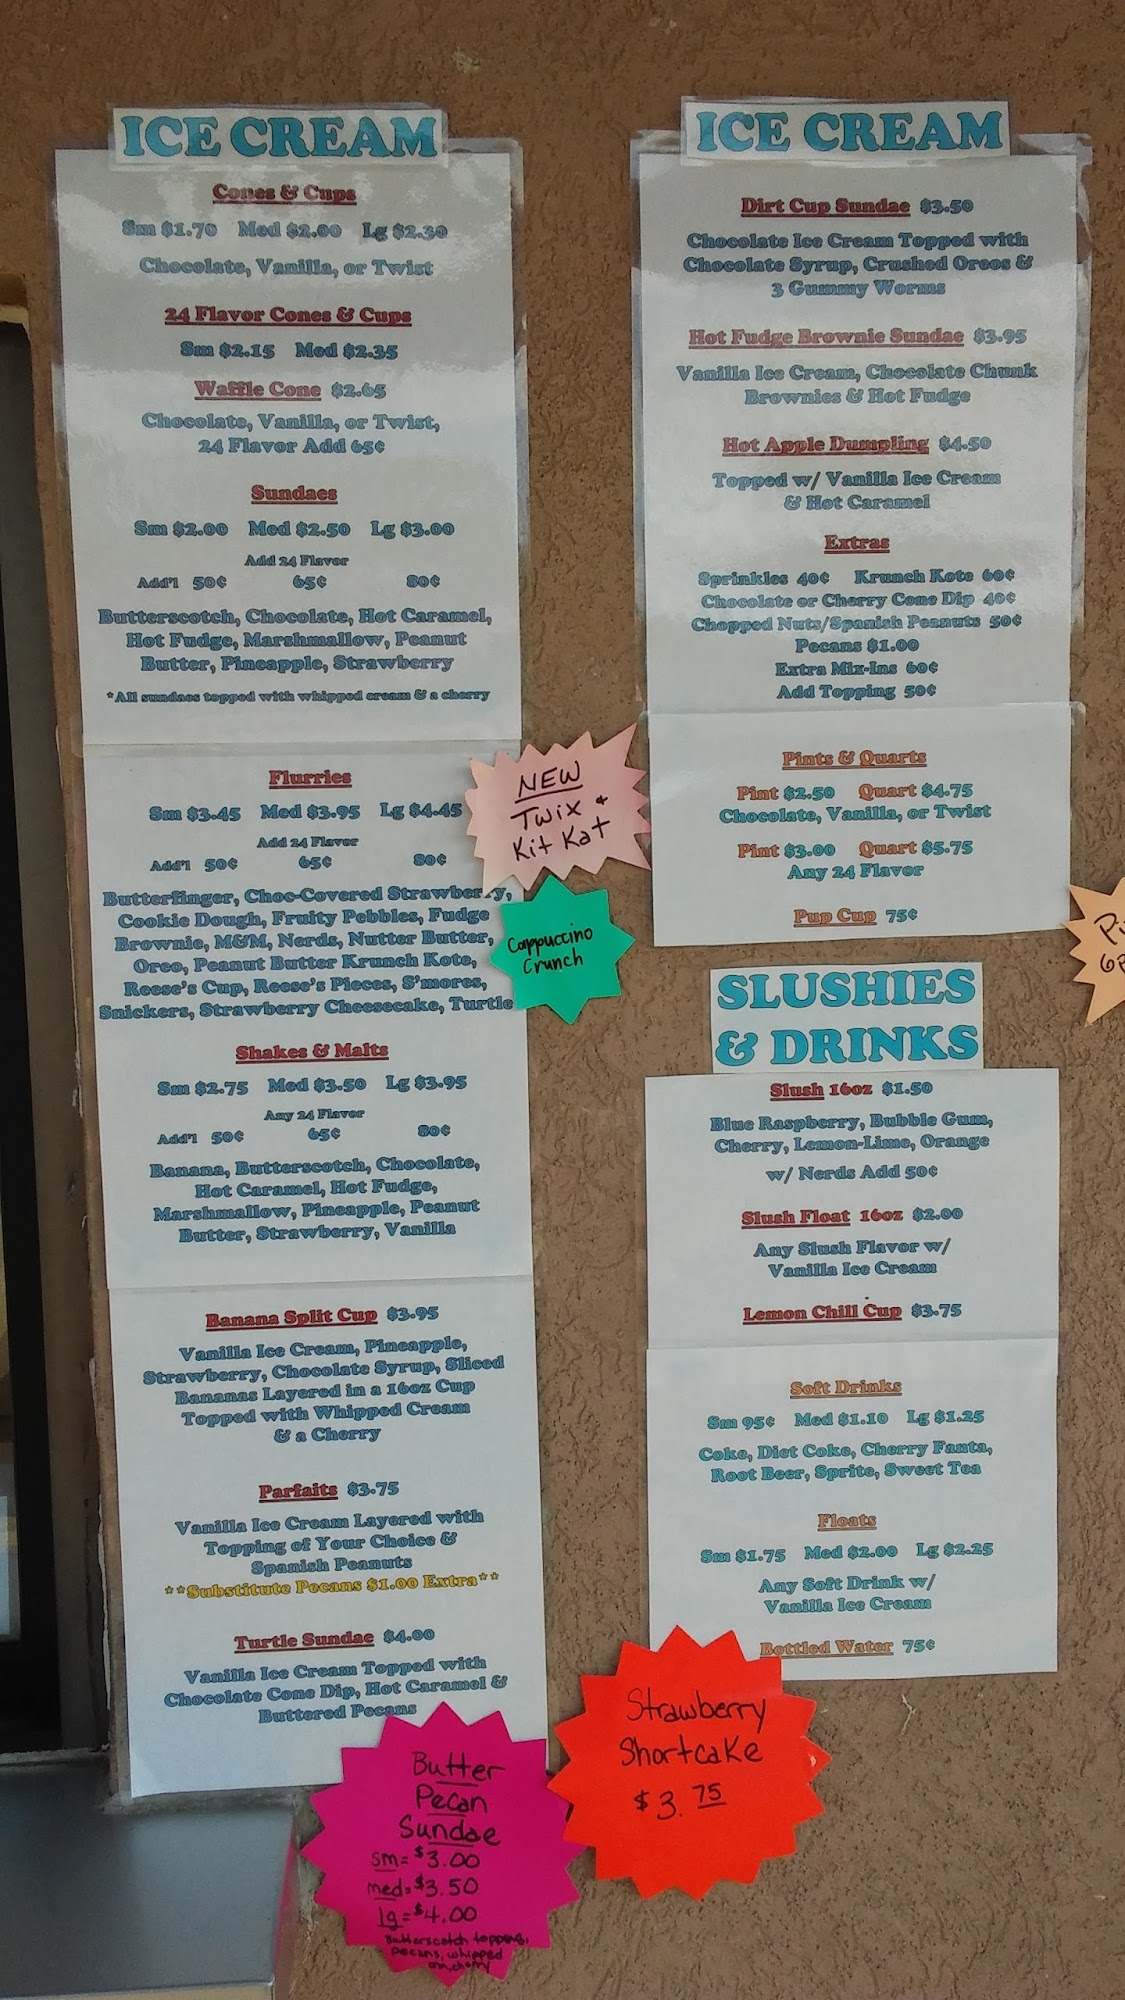 ICE CREAM
Cones & Cups
Sm $1.70 Med $2.00 Lg $2.30
Chocolate, Vanilla, or Twist
24 Flavor Cones & Cups
Sm $2.15 Med $2.35
Waffle Cone $2.65
Chocolate, Vanilla, or Twist,
24 Flavor Add 65¢
Sundaes
Sm $2.00 Med $2.50 Lg $3.00
Add 24 Flavor
Add'l 50¢ 65¢ 80¢
Butterscotch, Chocolate, Hot Caramel,
Hot Fudge, Marshmallow, Peanut
Butter, Pineapple, Strawberry
*All sundaes topped with whipped cream & a cherry
Flurries
Sm $3.45 Med $3.95 Lg $4.45
Add 24 Flavor
Add'l 50¢ 65¢ 80¢
Butterfinger, Choc-Covered Strawberry,
Cookie Dough, Fruity Pebbles, Fudge
Brownie, M&M, Nerds, Nutter Butter,
Oreo, Peanut Butter Krunch Kote,
Reese's Cup, Reese's Pieces, S'mores,
Snickers, Strawberry Cheesecake, Turtle
NEW
Twix &
Kit Kat
Cappuccino
Crunch
Shakes & Malts
Sm $2.75 Med $3.50 Lg $3.95
Any 24 Flavor
Add'l 50¢ 65¢ 80¢
Banana, Butterscotch, Chocolate,
Hot Caramel, Hot Fudge,
Marshmallow, Pineapple, Peanut
Butter, Strawberry, Vanilla
Banana Split Cup $3.95
Vanilla Ice Cream, Pineapple,
Strawberry, Chocolate Syrup, Sliced
Bananas Layered in a 16oz Cup
Topped with Whipped Cream
& a Cherry
Parfaits $3.75
Vanilla Ice Cream Layered with
Topping of Your Choice &
Spanish Peanuts
**Substitute Pecans $1.00 Extra**
Turtle Sundae $4.00
Vanilla Ice Cream Topped with
Chocolate Cone Dip, Hot Caramel &
Buttered Pecans
Butter
Pecan
Sundae
sm= $3.00
med= $3.50
lg= $4.00
Butterscotch topping,
pecans, whipped
cherry
ICE CREAM
Dirt Cup Sundae $3.50
Chocolate Ice Cream Topped with
Chocolate Syrup, Crushed Oreos &
3 Gummy Worms
Hot Fudge Brownie Sundae $3.95
Vanilla Ice Cream, Chocolate Chunk
Brownies & Hot Fudge
Hot Apple Dumpling $4.50
Topped w/ Vanilla Ice Cream
& Hot Caramel
Extras
Sprinkles 40¢ Krunch Kote 60¢
Chocolate or Cherry Cone Dip 40¢
Chopped Nuts/Spanish Peanuts 50¢
Pecans $1.00
Extra Mix-Ins 60¢
Add Topping 50¢
Pints & Quarts
Pint $2.50 Quart $4.75
Chocolate, Vanilla, or Twist
Pint $3.00 Quart $5.75
Any 24 Flavor
Pup Cup 75¢
SLUSHIES
& DRINKS
Slush 16oz $1.50
Blue Raspberry, Bubble Gum,
Cherry, Lemon-Lime, Orange
w/ Nerds Add 50¢
Slush Float 16oz $2.00
Any Slush Flavor w/
Vanilla Ice Cream
Lemon Chill Cup $3.75
Soft Drinks
Sm 95¢ Med $1.10 Lg $1.25
Coke, Diet Coke, Cherry Fanta,
Root Beer, Sprite, Sweet Tea
Floats
Sm $1.75 Med $2.00 Lg $2.25
Any Soft Drink w/
Vanilla Ice Cream
Bottled Water 75¢
Strawberry
Shortcake
$3.75